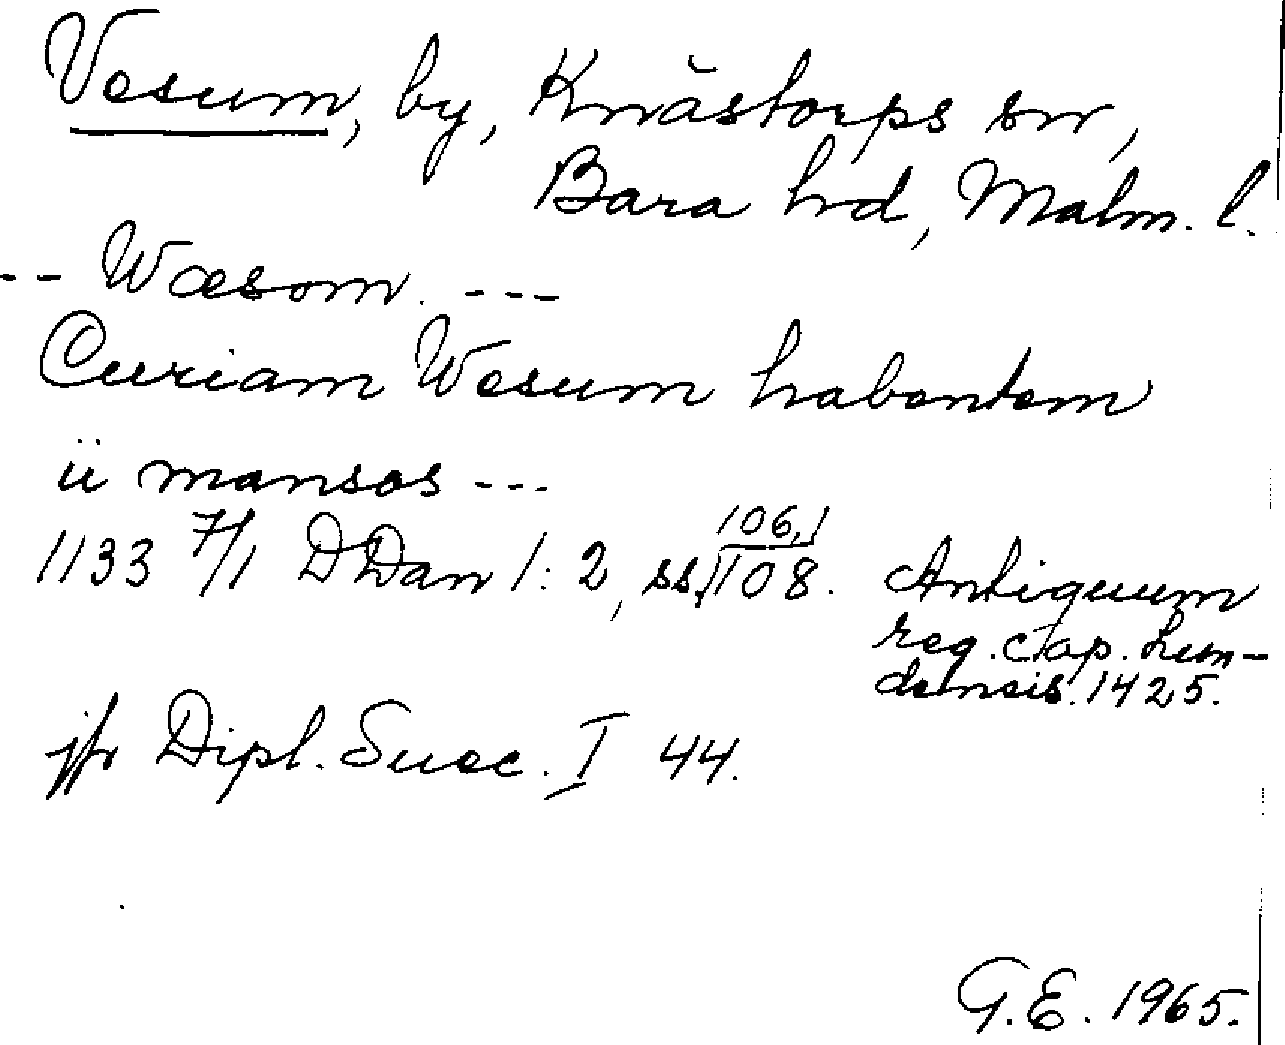 Vesum, by, Knästorps sn,
Bara hd, Malm. l.
-- Wæsom. ---
Curiam Wesum habentem
ii mansos ---
1133 7/1 DDan 1: 2, ss. 106, 108. Antiquum
reg. cap. Lun-
densis. 1425.
jfr Dipl. Suec. I 44.
G.E. 1965.